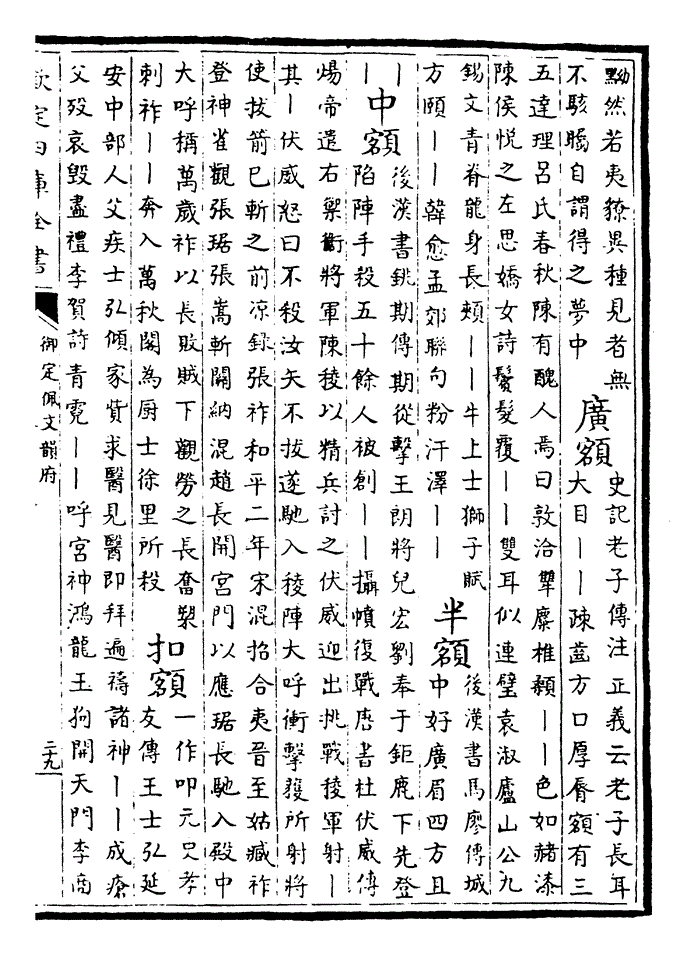 黝然若夷獠異種見者無
不駭矚自謂得之夢中
廣額
史記老子傳注正義云老子長耳
大目丨丨疎齒方口厚脣額有三
五達理呂氏春秋陳有醜人焉曰敦洽讐麋椎顙丨丨色如赭漆
陳侯悅之左思嬌女詩鬢髮覆丨丨雙耳似連璧袁淑廬山公九
錫文青脊龍身長頰丨丨牛上士獅子賦
方頤丨丨韓愈孟郊聯句粉汗澤丨丨
半額
後漢書馬廖傳城
中好廣眉四方且
丨
丨
中額
後漢書銚期傳期從擊王朗將兒宏劉奉于鉅鹿下先登
陷陣手殺五十餘人被創丨丨攝幘復戰唐書杜伏威傳
煬帝遣右禦衛將軍陳稜以精兵討之伏威迎出挑戰稜軍射丨
其丨伏威怒曰不殺汝矢不拔遂馳入稜陣大呼衝擊獲所射將
使拔箭已斬之前凉錄張祚和平二年宋混招合夷晉至姑臧祚
登神雀觀張琚張嵩斬關納混趙長開宮門以應琚長馳入殿中
大呼稱萬歲祚以長敗賊下觀勞之長奮槊
刺祚丨丨奔入萬秋閣為厨士徐里所殺
扣額
一作叩元史孝
友傳王士弘延
安中部人父疾士弘傾家貲求醫見醫即拜遍禱諸神丨丨成瘡
父歿哀毀盡禮李賀許青霓丨丨呼宮神鴻龍玉狗開天門李商
欽定四庫全書
御定佩文韻府
二九